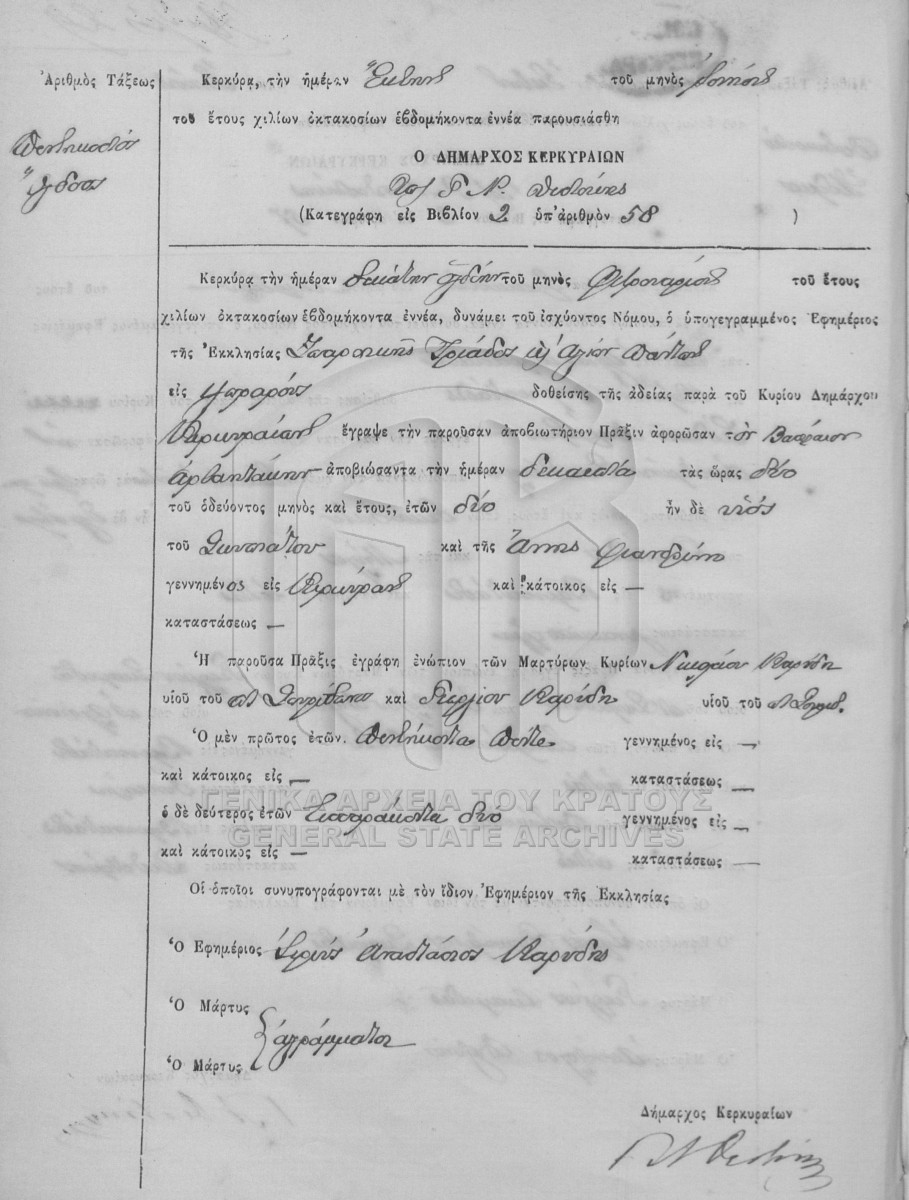 Ἀριθμὸς Τάξεως
Πεντηκοστός
Ὄγδοος
Κερκύρᾳ, τὴν ἡμέραν Ἕκτην τοῦ μηνὸς
τοῦ ἔτους χιλίων ὀκτακοσίων ἑβδομήκοντα ἐννέα παρουσιάσθη
Ο ΔΗΜΑΡΧΟΣ ΚΕΡΚΥΡΑΙΩΝ
(Κατεγράφη εἰς Βιβλίον 2 ὑπ' ἀριθμὸν 58 )
Κερκύρᾳ τὴν ἡμέραν δεκάτην ὀγδόην τοῦ μηνὸς Φεβρουαρίου τοῦ ἔτους
χιλίων ὀκτακοσίων ἑβδομήκοντα ἐννέα, δυνάμει τοῦ ἰσχύοντος Νόμου, ὁ ὑπογεγραμμένος Ἐφημέριος
τῆς Ἐκκλησίας Τριάδος Ἁγίων Πάντων
εἰς δοθείσης τῆς ἀδείας παρὰ τοῦ Κυρίου Δημάρχου
Κερκυραίων ἔγραψε τὴν παροῦσαν ἀποβιωτήριον Πρᾶξιν ἀφορῶσαν τὸν
ἀποβιώσαντα τὴν ἡμέραν τὰς ὥρας δύο
τοῦ ὁδεύοντος μηνὸς καὶ ἔτους, ἐτῶν δύο ἦν δὲ υἱός
τοῦ καὶ τῆς Ἄννης
γεννημένος εἰς Κέρκυραν καὶ κάτοικος εἰς —
καταστάσεως —
Ἡ παροῦσα Πρᾶξις ἐγράφη ἐνώπιον τῶν Μαρτύρων Κυρίων Νικολάου Καρύδη
υἱοῦ τοῦ καὶ Γεωργίου Καρύδη υἱοῦ τοῦ
Ὁ μὲν πρῶτος ἐτῶν. Πεντήκοντα Πέντε γεννημένος εἰς —
καὶ κάτοικος εἰς — καταστάσεως —
ὁ δὲ δεύτερος ἐτῶν Τεσσαράκοντα δύο γεννημένος εἰς —
καὶ κάτοικος εἰς — καταστάσεως —
Οἱ ὁποῖοι συνυπογράφονται μὲ τὸν ἴδιον Ἐφημέριον τῆς Ἐκκλησίας
Ὁ Ἐφημέριος Ἱερεὺς Ἀναστάσιος Καρύδης
Ὁ Μάρτυς
ἀγράμματοι
Ὁ Μάρτυς
Δήμαρχος Κερκυραίων
ΓΕΝΙΚΑ ΑΡΧΕΙΑ ΤΟΥ ΚΡΑΤΟΥΣ
GENERAL STATE ARCHIVES